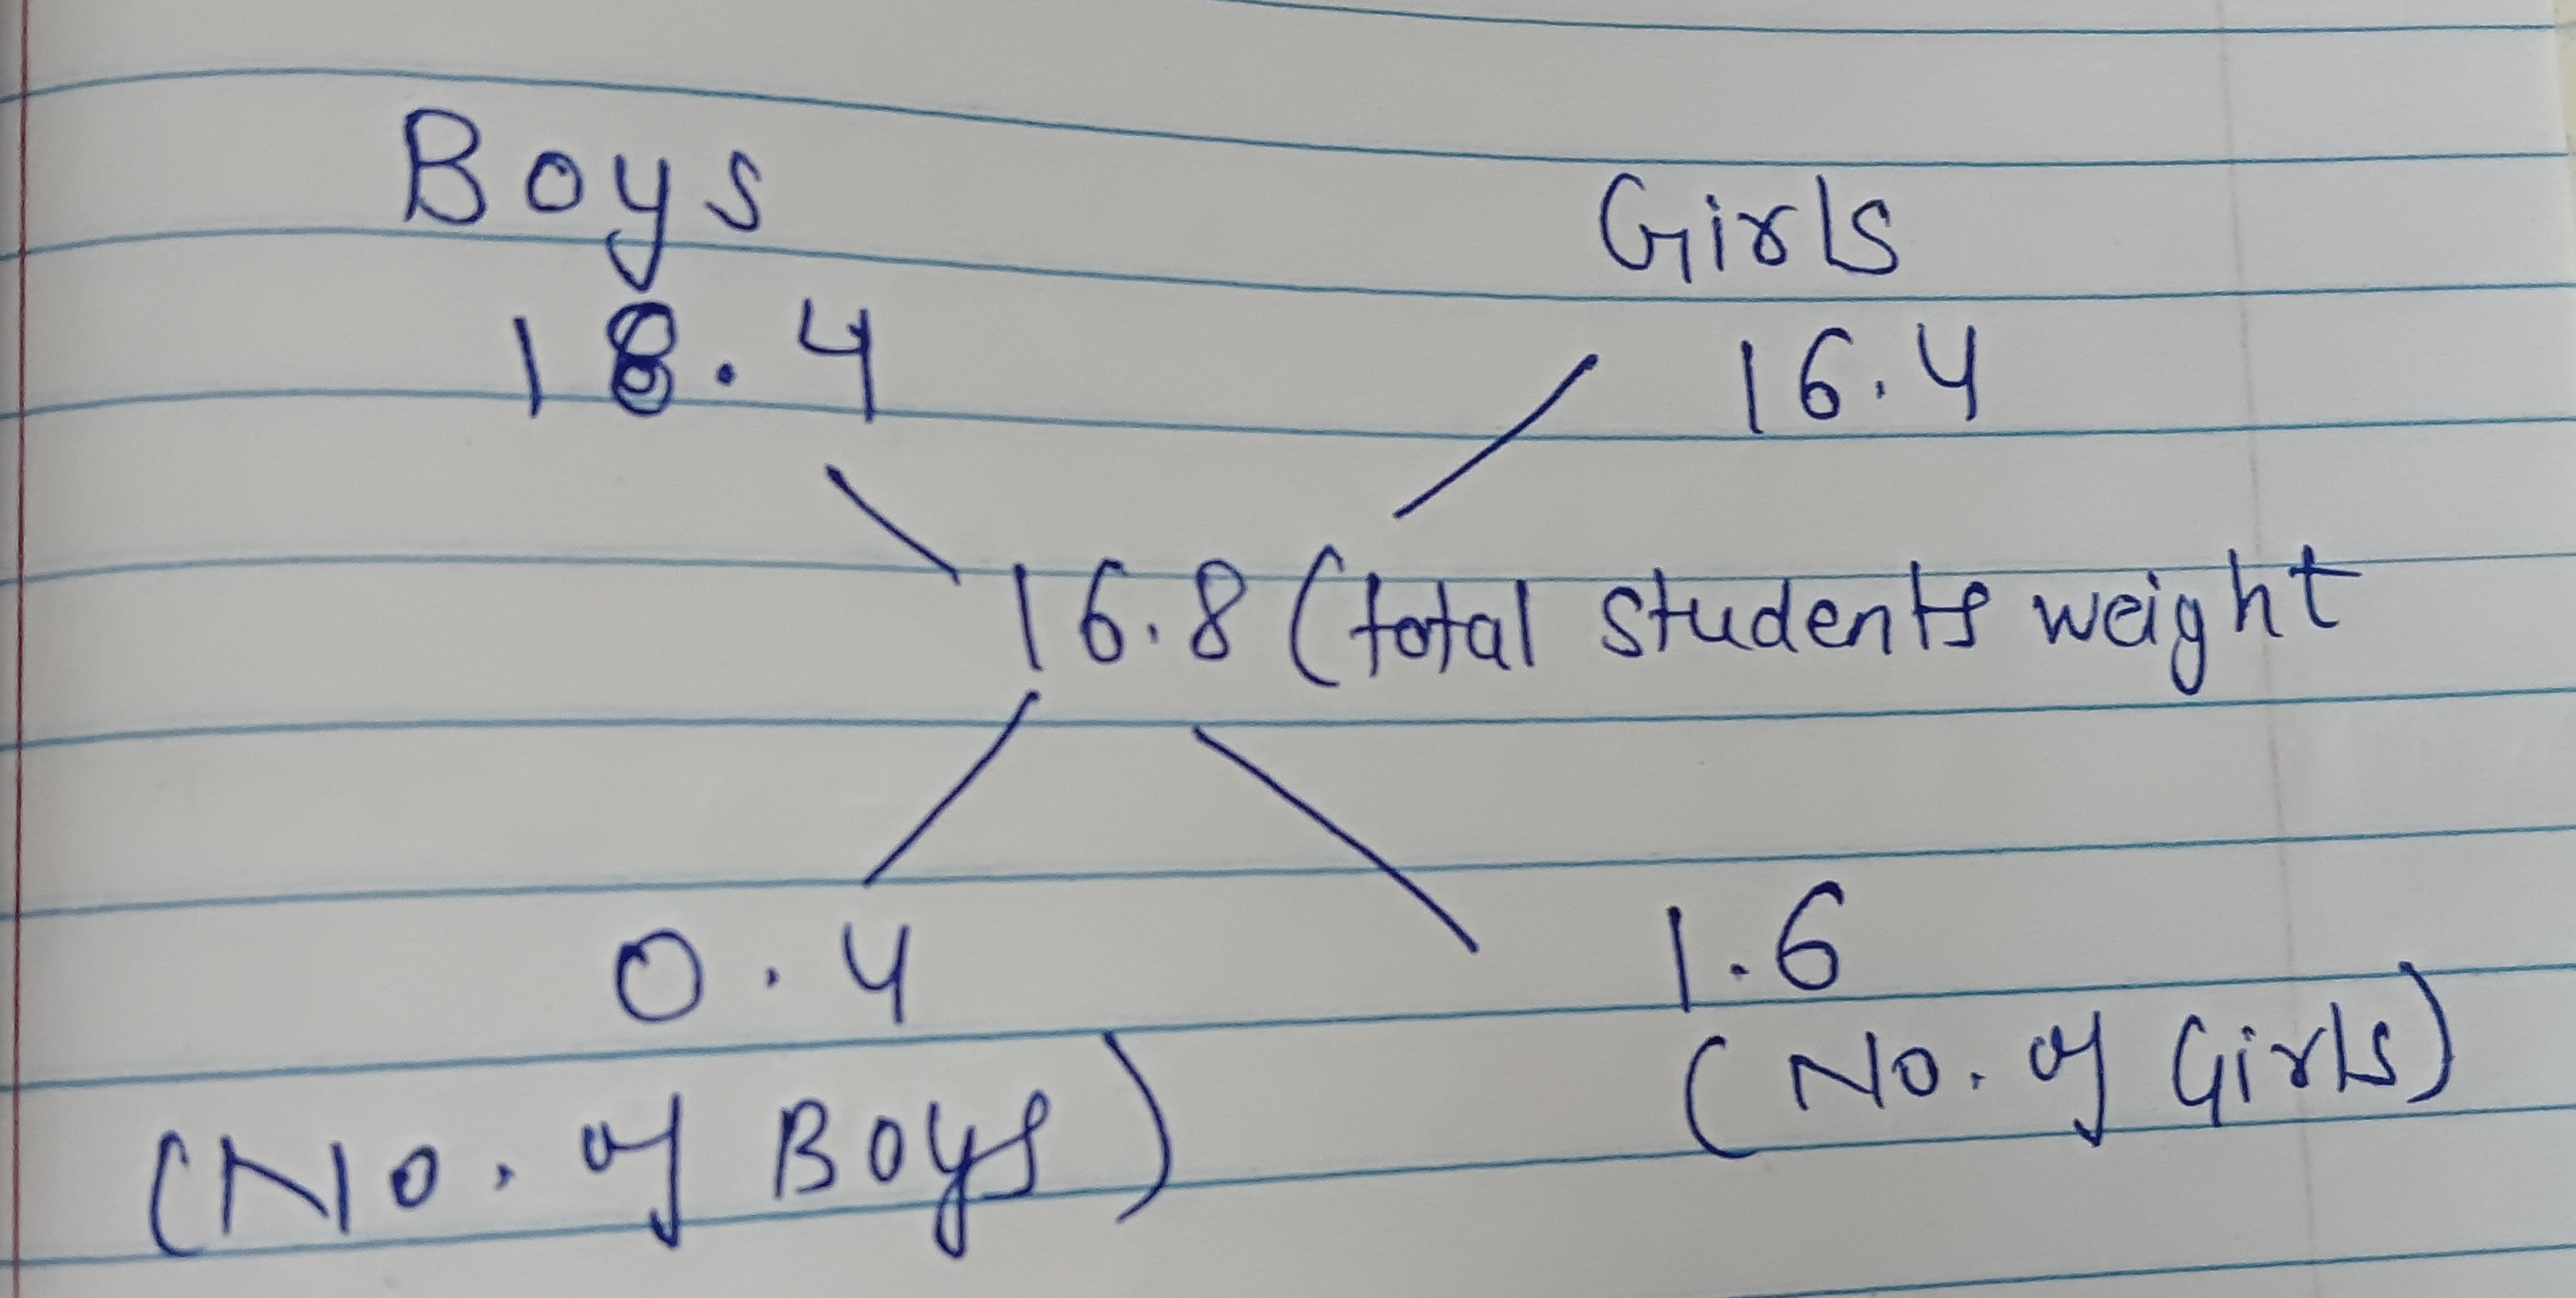 Boys Girls
18.4 16.4
16.8 (total students weight
0.4 1.6
(No. of Boys) (No. of Girls)